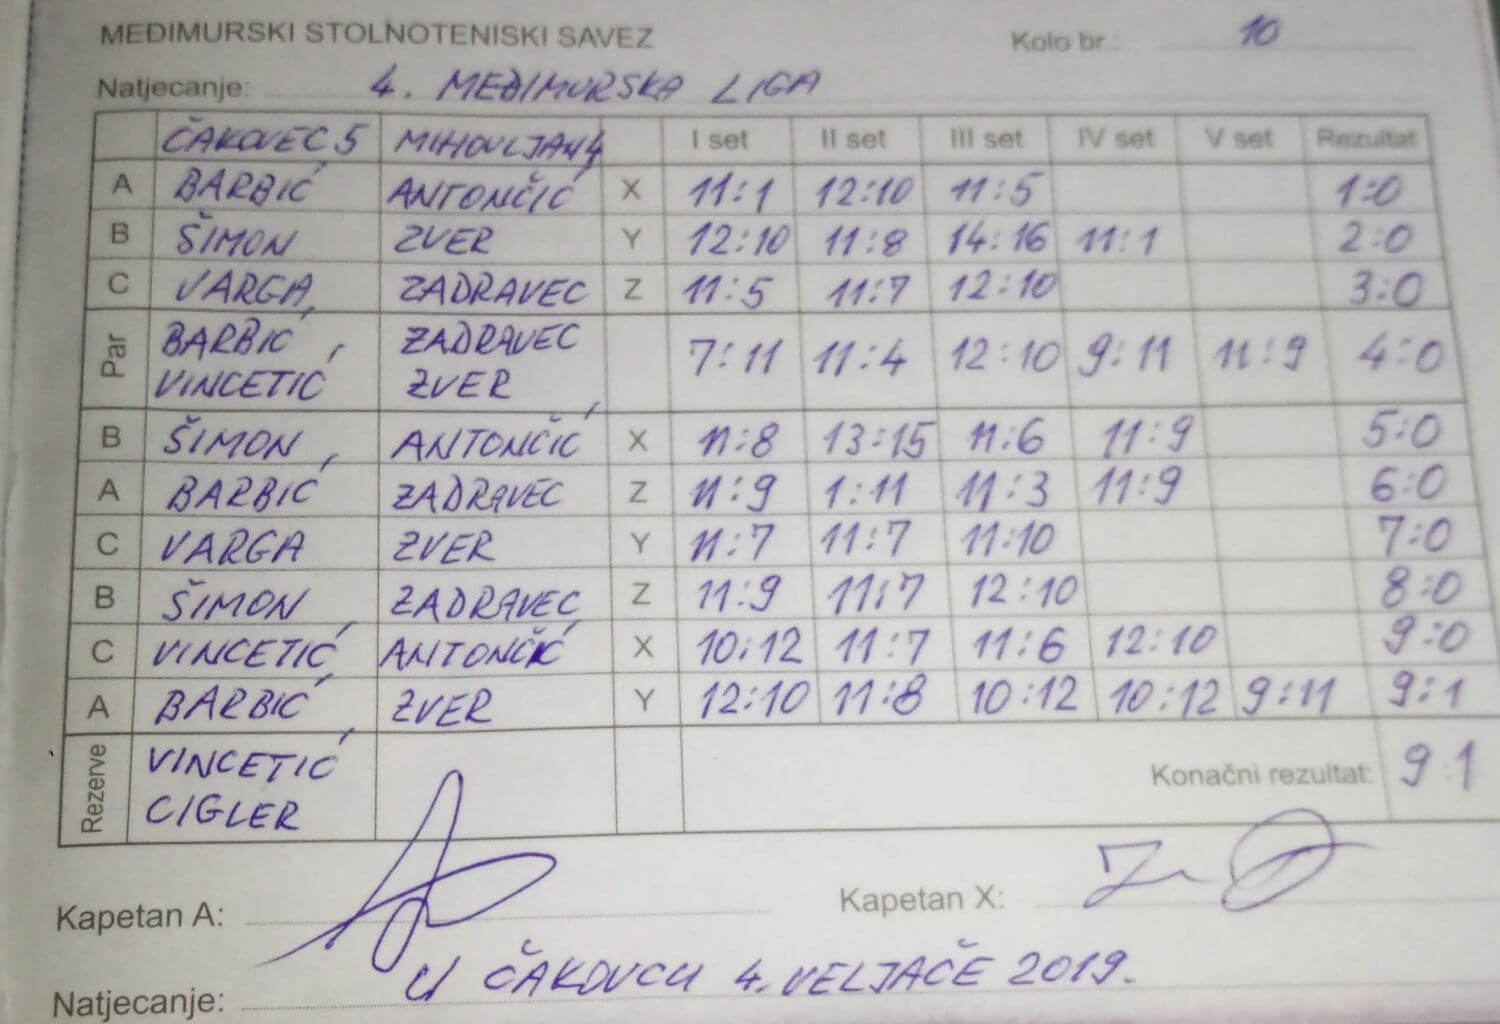 MEĐIMURSKI STOLNOTENISKI SAVEZ Kolo br.: 10
Natjecanje: 4. MEĐIMURSKA LIGA
ČAKOVEC 5 MIHOVLJAN 4 I set II set III set IV set V set Rezultat
A BARBIĆ ANTONČIĆ X 11:1 12:10 11:5 1:0
B ŠIMON ZVER Y 12:10 11:8 14:16 11:1 2:0
C VARGA ZADRAVEC Z 11:5 11:7 12:10 3:0
Par BARBIĆ, ZADRAVEC 7:11 11:4 12:10 9:11 11:9 4:0
VINCETIĆ ZVER
B ŠIMON ANTONČIĆ X 11:8 13:15 11:6 11:9 5:0
A BARBIĆ ZADRAVEC Z 11:9 1:11 11:3 11:9 6:0
C VARGA ZVER Y 11:7 11:7 11:10 7:0
B ŠIMON ZADRAVEC Z 11:9 11:7 12:10 8:0
C VINCETIĆ ANTONČIĆ X 10:12 11:7 11:6 12:10 9:0
A BARBIĆ ZVER Y 12:10 11:8 10:12 10:12 9:11 9:1
Rezerve VINCETIĆ Konačni rezultat: 9 1
CIGLER
Kapetan A: Kapetan X:
Natjecanje: U ČAKOVCU 4. VELJAČE 2019.